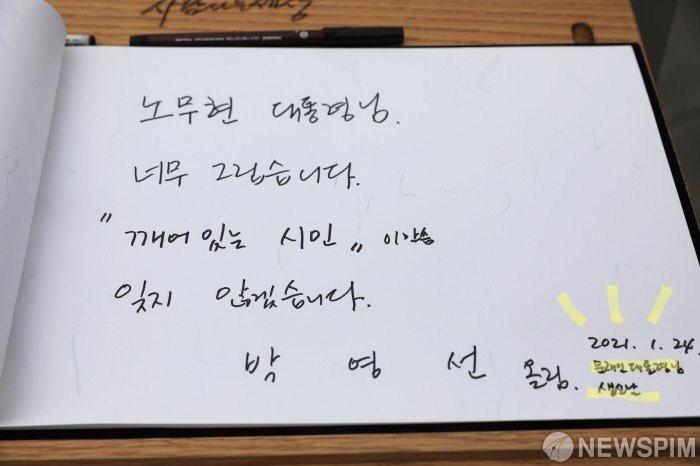 사람사는세상
노무현 대통령님.
너무 그립습니다.
"깨어있는 시민" 이 말씀
잊지 않겠습니다.
박 영 선 올림.
2021. 1. 24.
문재인대통령님
생신날
NEWSPIM